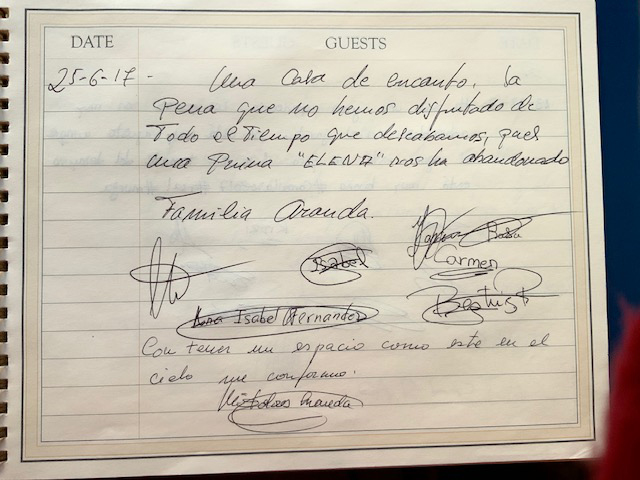 DATE GUESTS
25-6-17- Una Casa de encanto, la
pena que no hemos disfrutado de
Todo el Tiempo que deseabamos, pues
una prima "ELENA" nos ha abandonado
Familia Aranda.
Isabel
Carmen
Beatriz
Ana Isabel Fernandez
Con tener un espacio como este en el
cielo me conformo.
Aranda